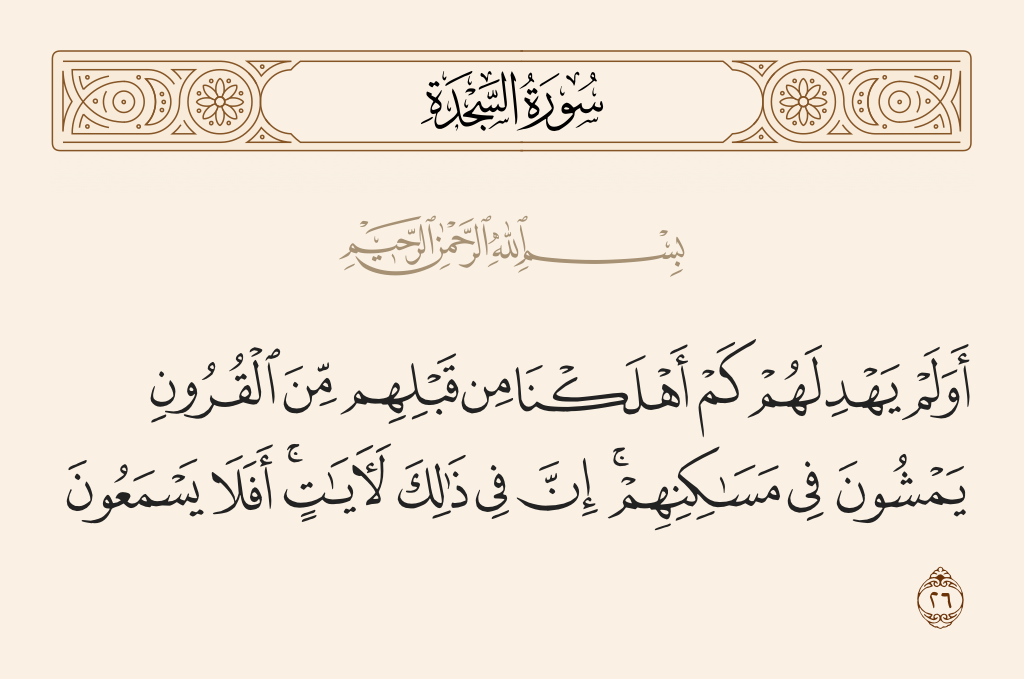 سُورَةُ السَّجْدَةِ
بِسْمِ ٱللَّهِ ٱلرَّحْمَٰنِ ٱلرَّحِيمِ
أَوَلَمْ يَهْدِ لَهُمْ كَمْ أَهْلَكْنَا مِن قَبْلِهِم مِّنَ ٱلْقُرُونِ
يَمْشُونَ فِى مَسَٰكِنِهِمْ ۚ إِنَّ فِى ذَٰلِكَ لَـَٔايَٰتٍ ۚ أَفَلَا يَسْمَعُونَ
٢٦